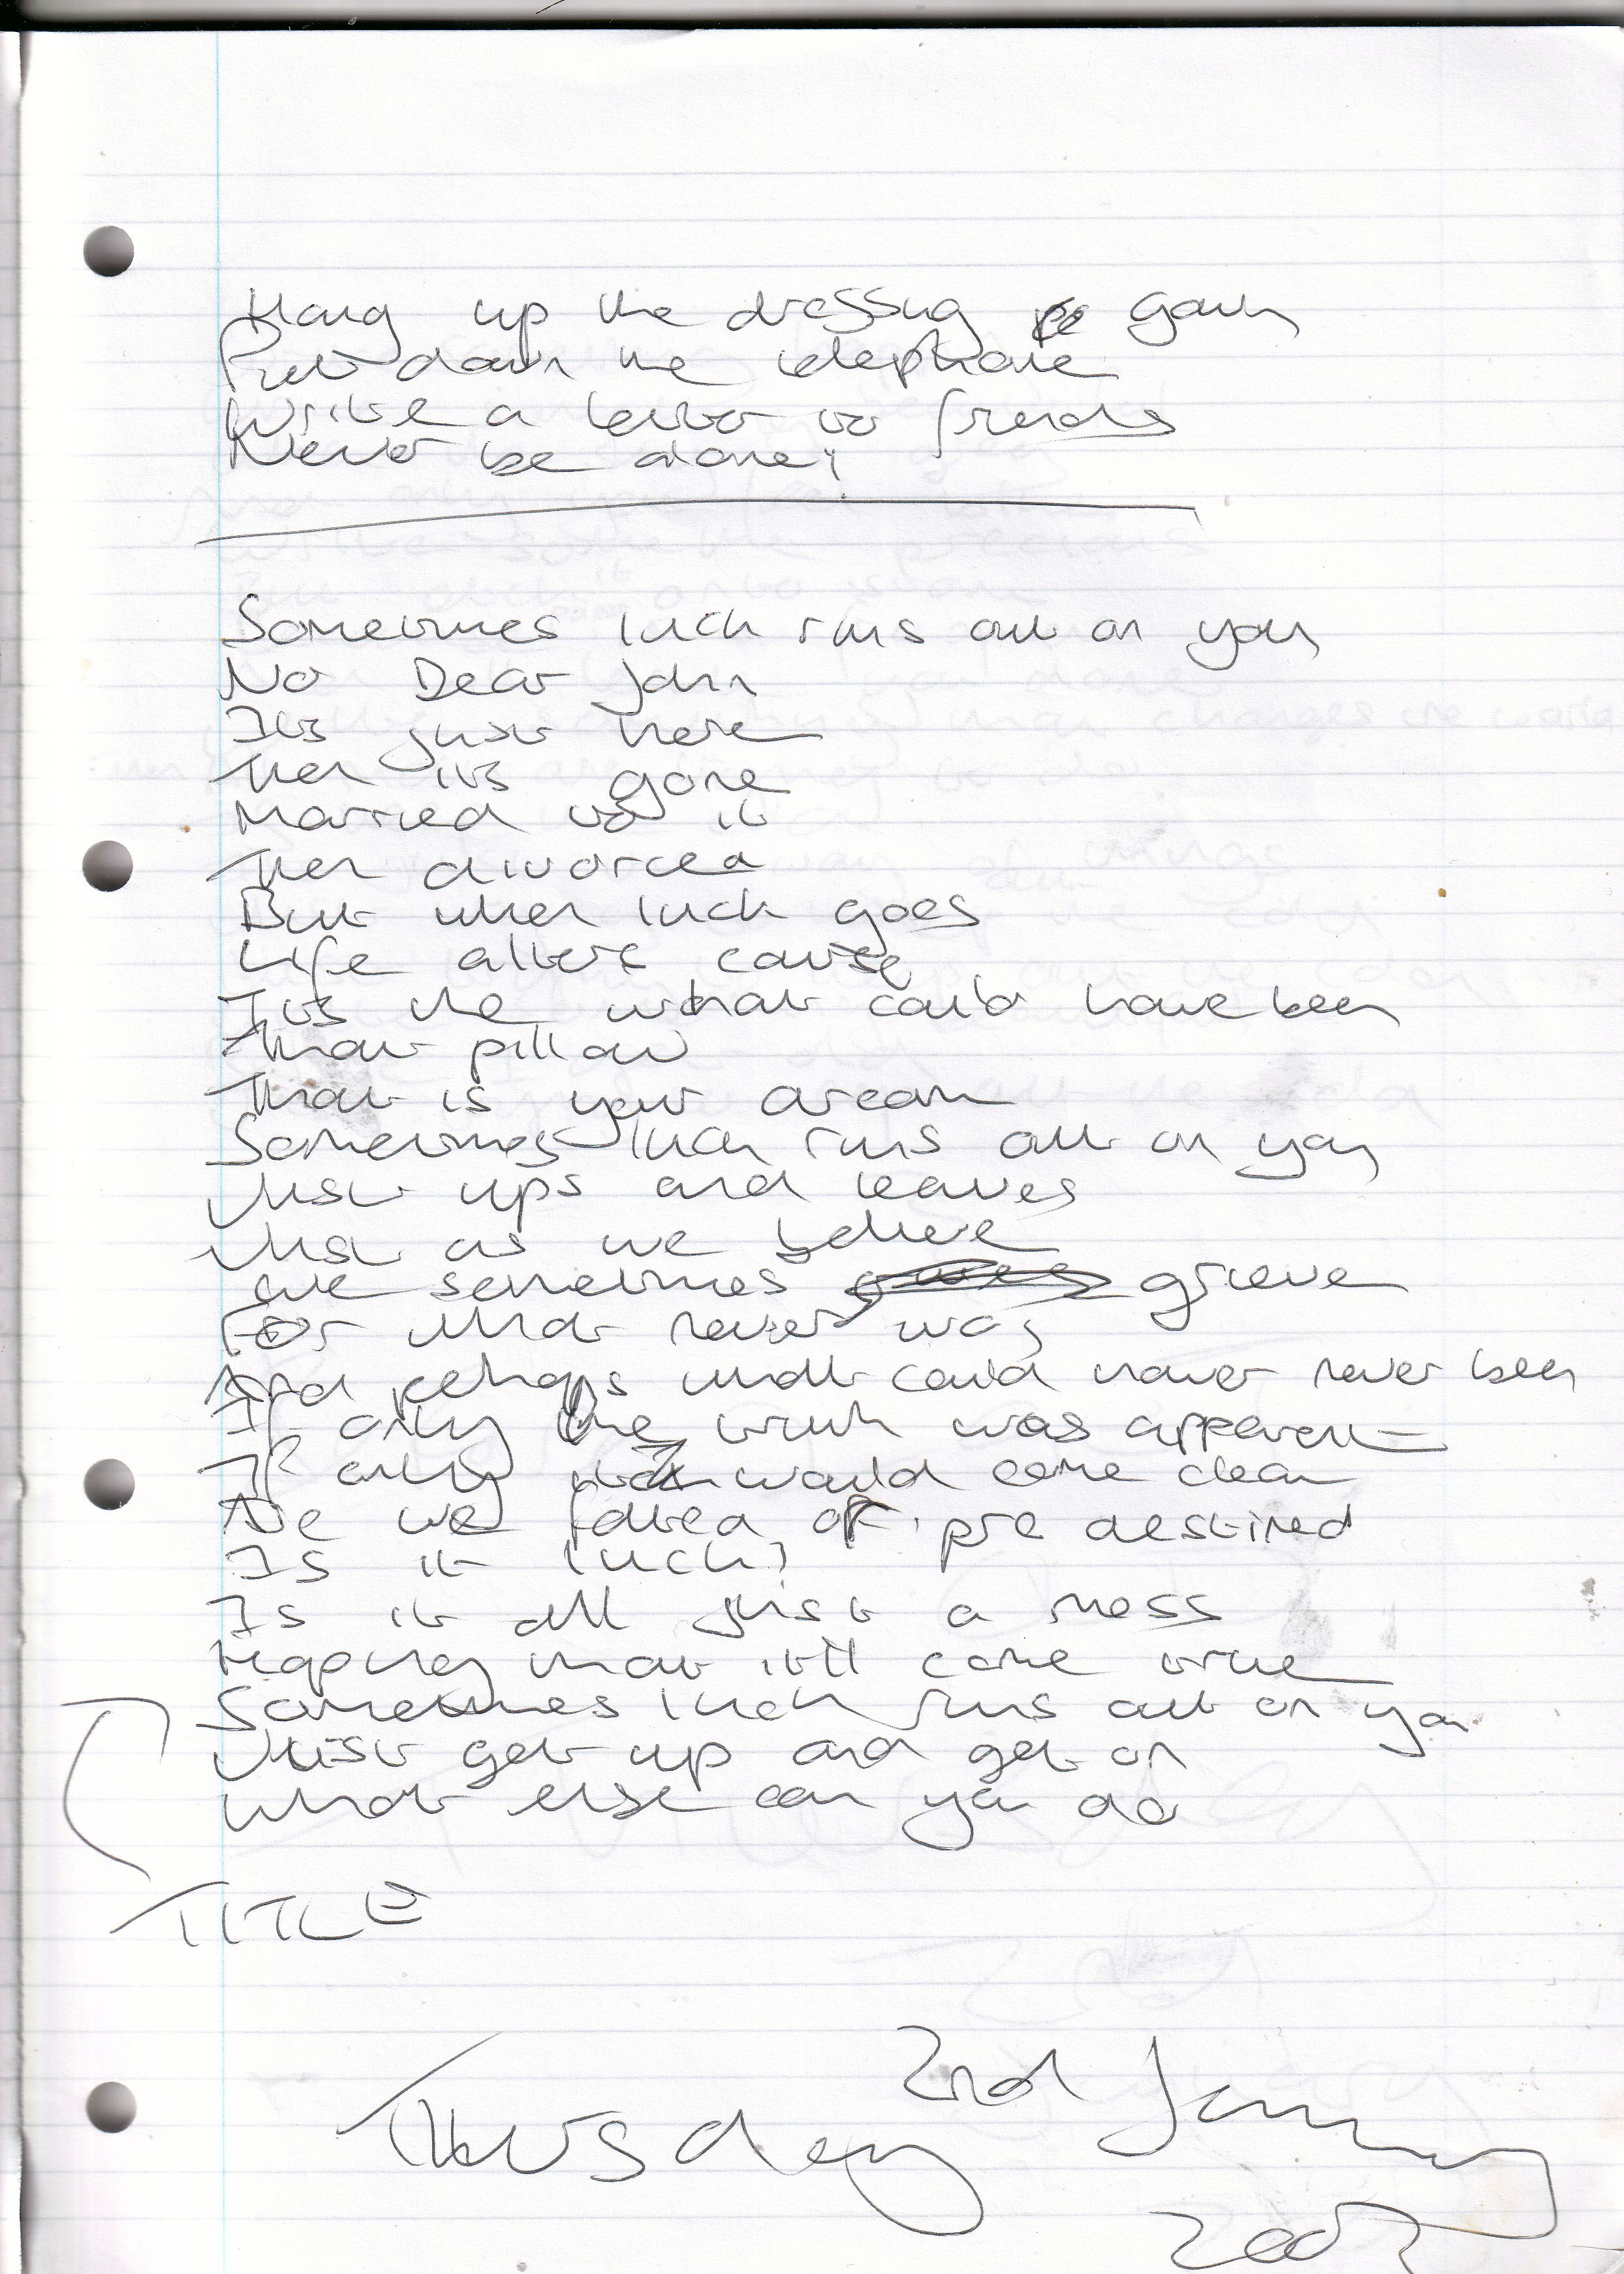 Hang up the dressing gown
Put down the telephone
Write a letter to friends
Never be alone!
Sometimes luck runs out on you
No Dear John
Its just here
Then its gone
Married to it
Then divorced
But when luck goes
Life alters course
Its the what could have been
That pillow
That is your dream
Sometimes luck runs out on you
Just ups and leaves
Just as we believe
We sometimes grieve
For what never was
And perhaps what could have never been
If only the truth was apparent
If only it would come clean
Are we fated or pre destined
Is it luck?
Is it all just a mess
Hoping that it'll come true
Sometimes luck runs out on you
Just get up and get on
What else can you do
TITLE
2nd January
Thursday